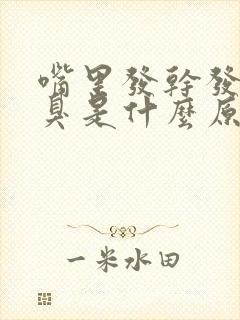 嘴里發幹發
臭是什麽原
一米水田